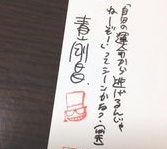 「自分の運命から逃げるんじゃ
ねーぞ…ってシーンかな?(笑)
青山剛昌